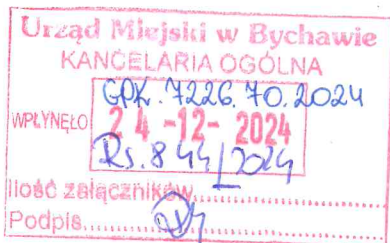 Urząd Miejski w Bychawie
KANCELARIA OGÓLNA
GPK.7226.70.2024
WPŁYNĘŁO 24 -12- 2024
Rs. 844/2024
Ilość załączników..............
Podpis..............